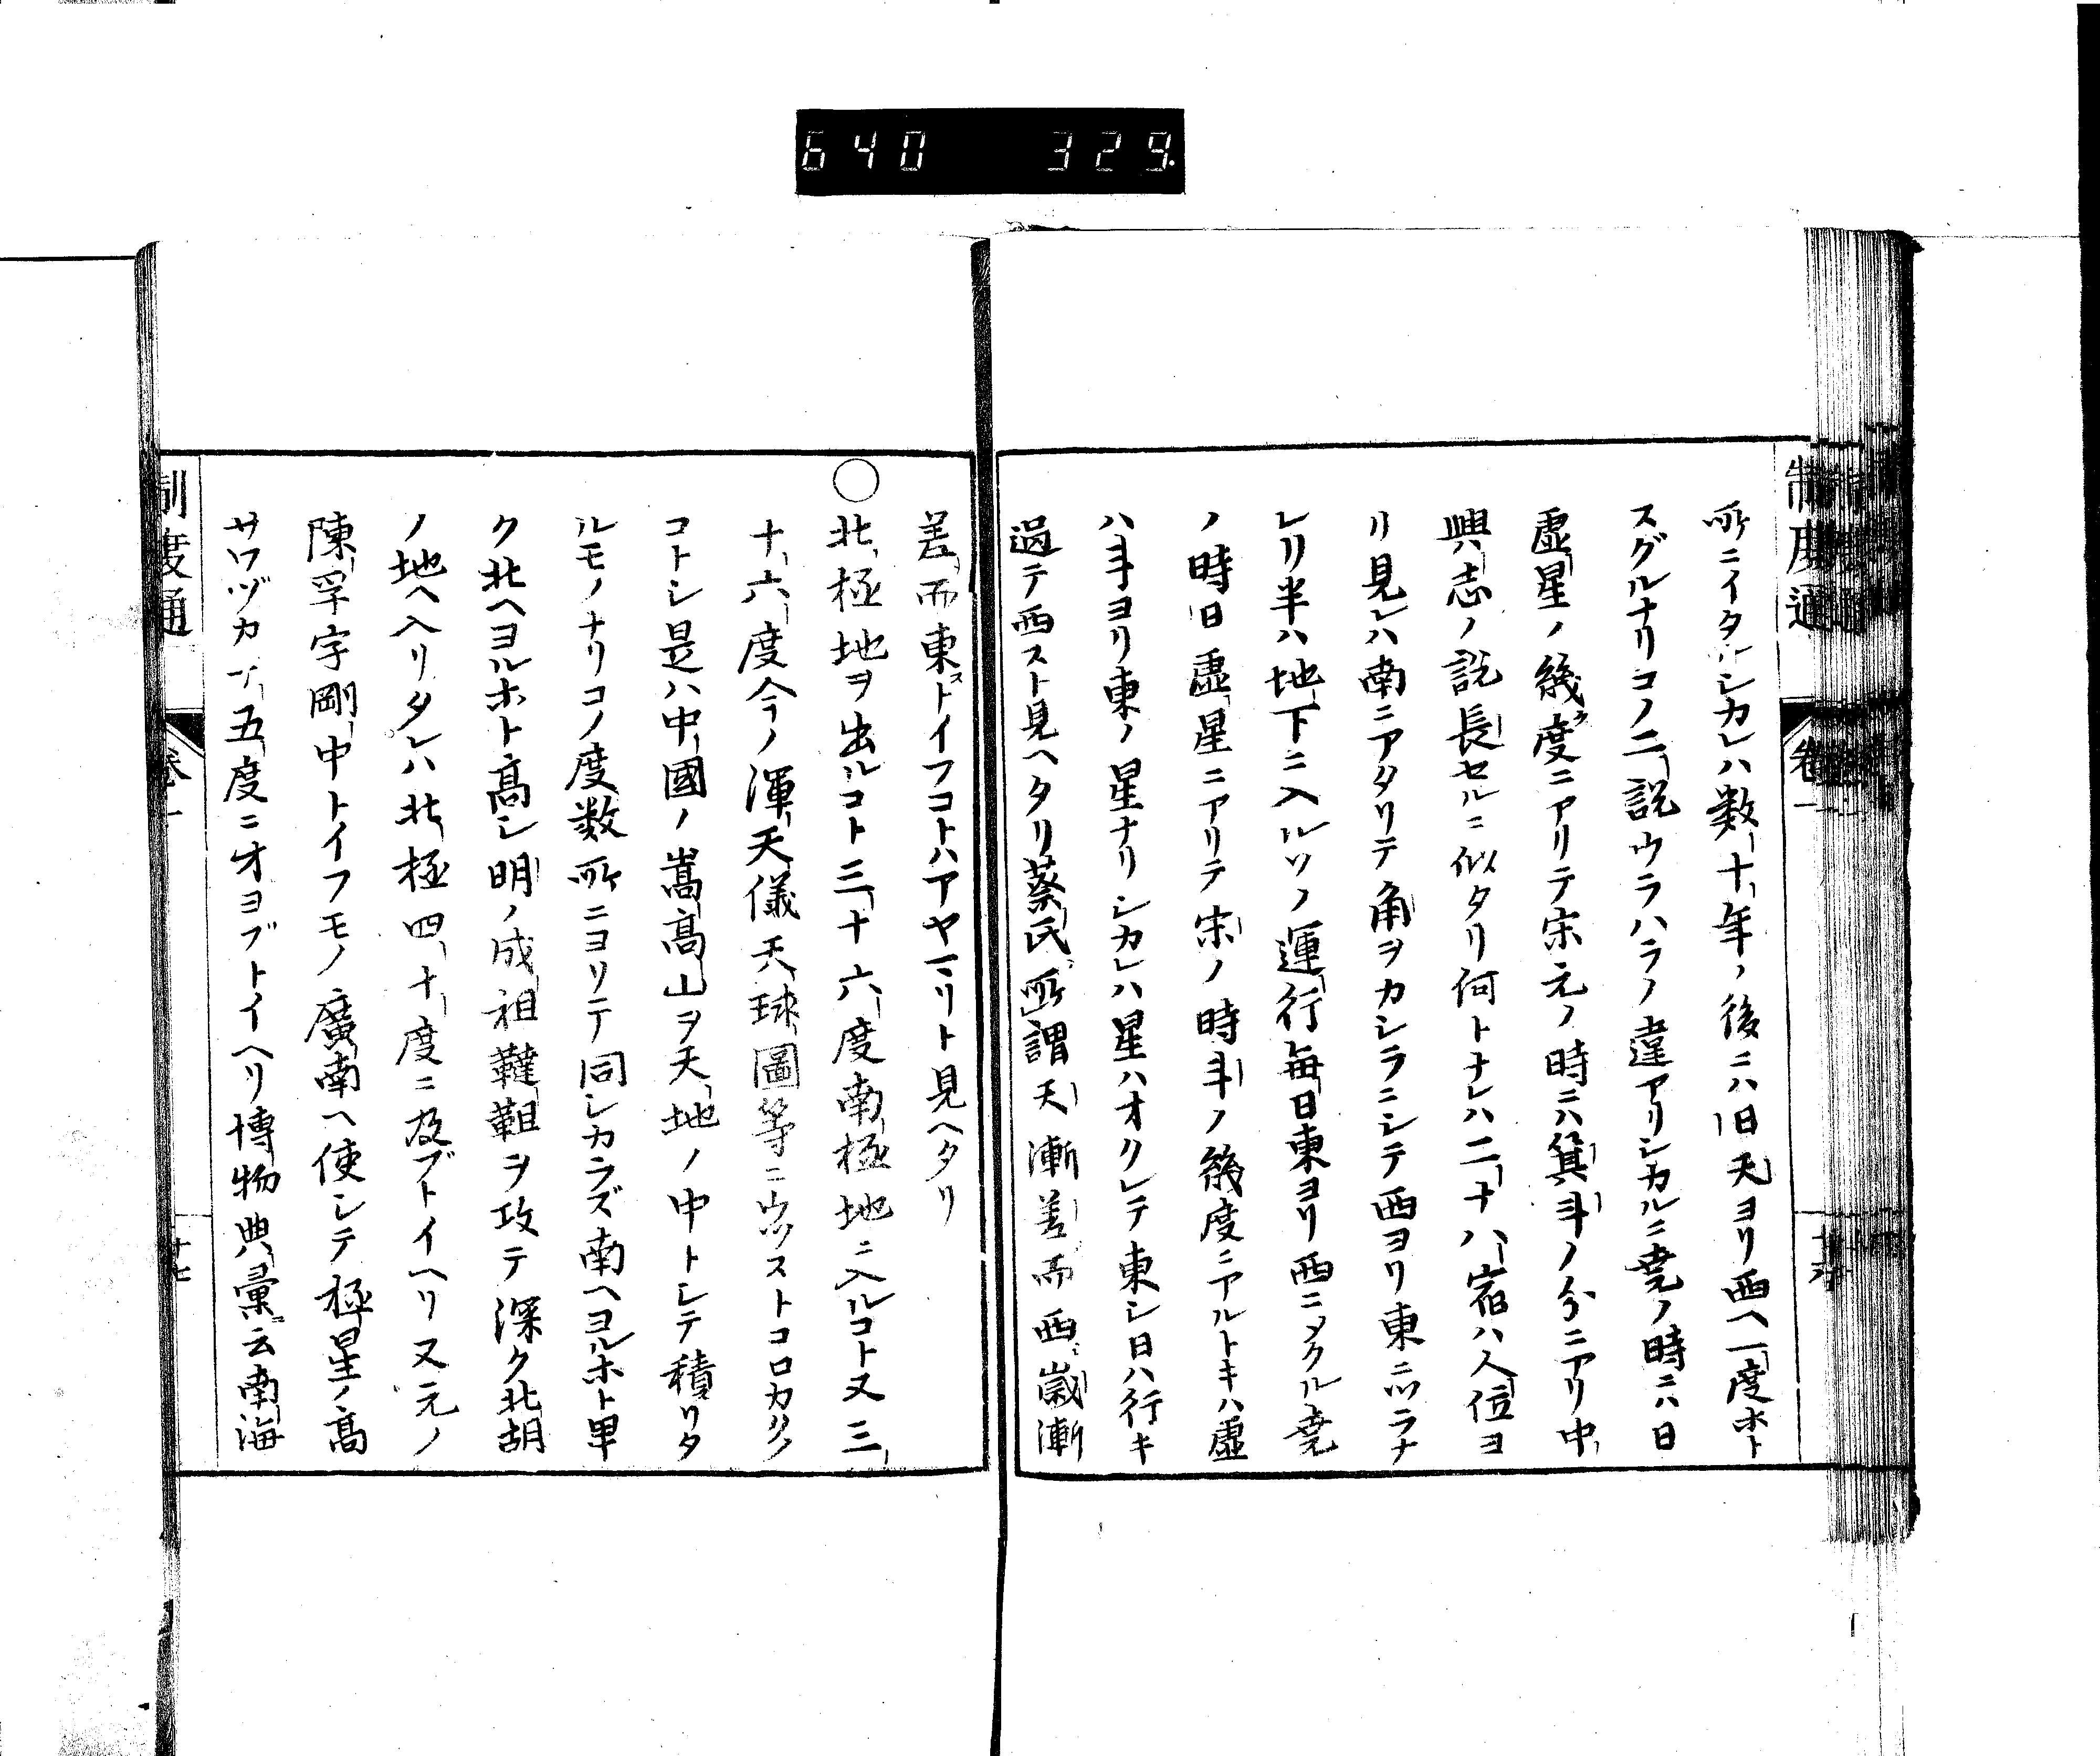 640 329
制度通
卷一
所ニイタルシカレハ数十年ノ後ニハ旧天ヨリ西ヘ一度ホト
スグルナリコノ二説ウラハラノ違アリシカルニ堯ノ時ニハ日
虚星ノ幾度ニアリテ宋元ノ時ニハ箕斗ノ分ニアリ中
興志ノ説長セルニ似タリ何トナレハ二十八宿ハ人位ヨ
リ見レハ南ニアタリテ角ヲカシラニシテ西ヨリ東ニツラナ
レリ半ハ地下ニ入ルソノ運行毎日東ヨリ西ニメクル堯
ノ時日虚星ニアリテ宋ノ時斗ノ幾度ニアルトキハ虚
ハ斗ヨリ東ノ星ナリシカレハ星ハオクレテ東シ日ハ行キ
過テ西スト見ヘタリ蔡氏所謂天漸差而西歳漸
差而東ストイフコトハアヤマリト見ヘタリ
○北極地ヲ出ルコト三十六度南極地ニ入ルコト又三
十六度今ノ渾天儀天球圖等ニ出ストコロカクノ
コトシ是ハ中國ノ嵩高山ヲ天地ノ中トシテ積リタ
ルモノナリコノ度数所ニヨリテ同シカラズ南ヘヨルホト卑
ク北ヘヨルホト高シ明ノ成祖韃靼ヲ攻テ深ク北胡
ノ地ヘ入リタレハ北極四十度ニ及ブトイヘリ又元ノ
陳孚字剛中トイフモノ廣南ヘ使シテ極星ノ高
サワヅカニ五度ニオヨブトイヘリ博物典彙云南海
制度通
卷一
十七